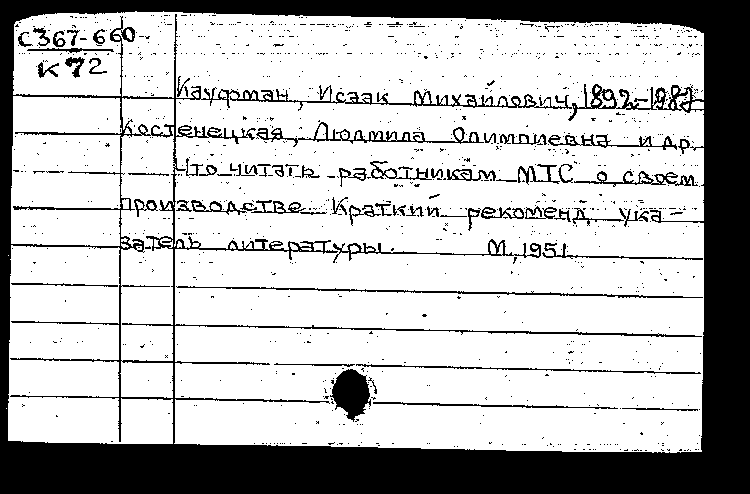 С367-660
К72
Кауфман, Исаак Михайлович, 1892-1982
Костенецкая, Людмила Олимпиевна и др.
Что читать работникам МТС о своем
производстве. Краткий рекоменд. ука-
затель литературы. М., 1951.